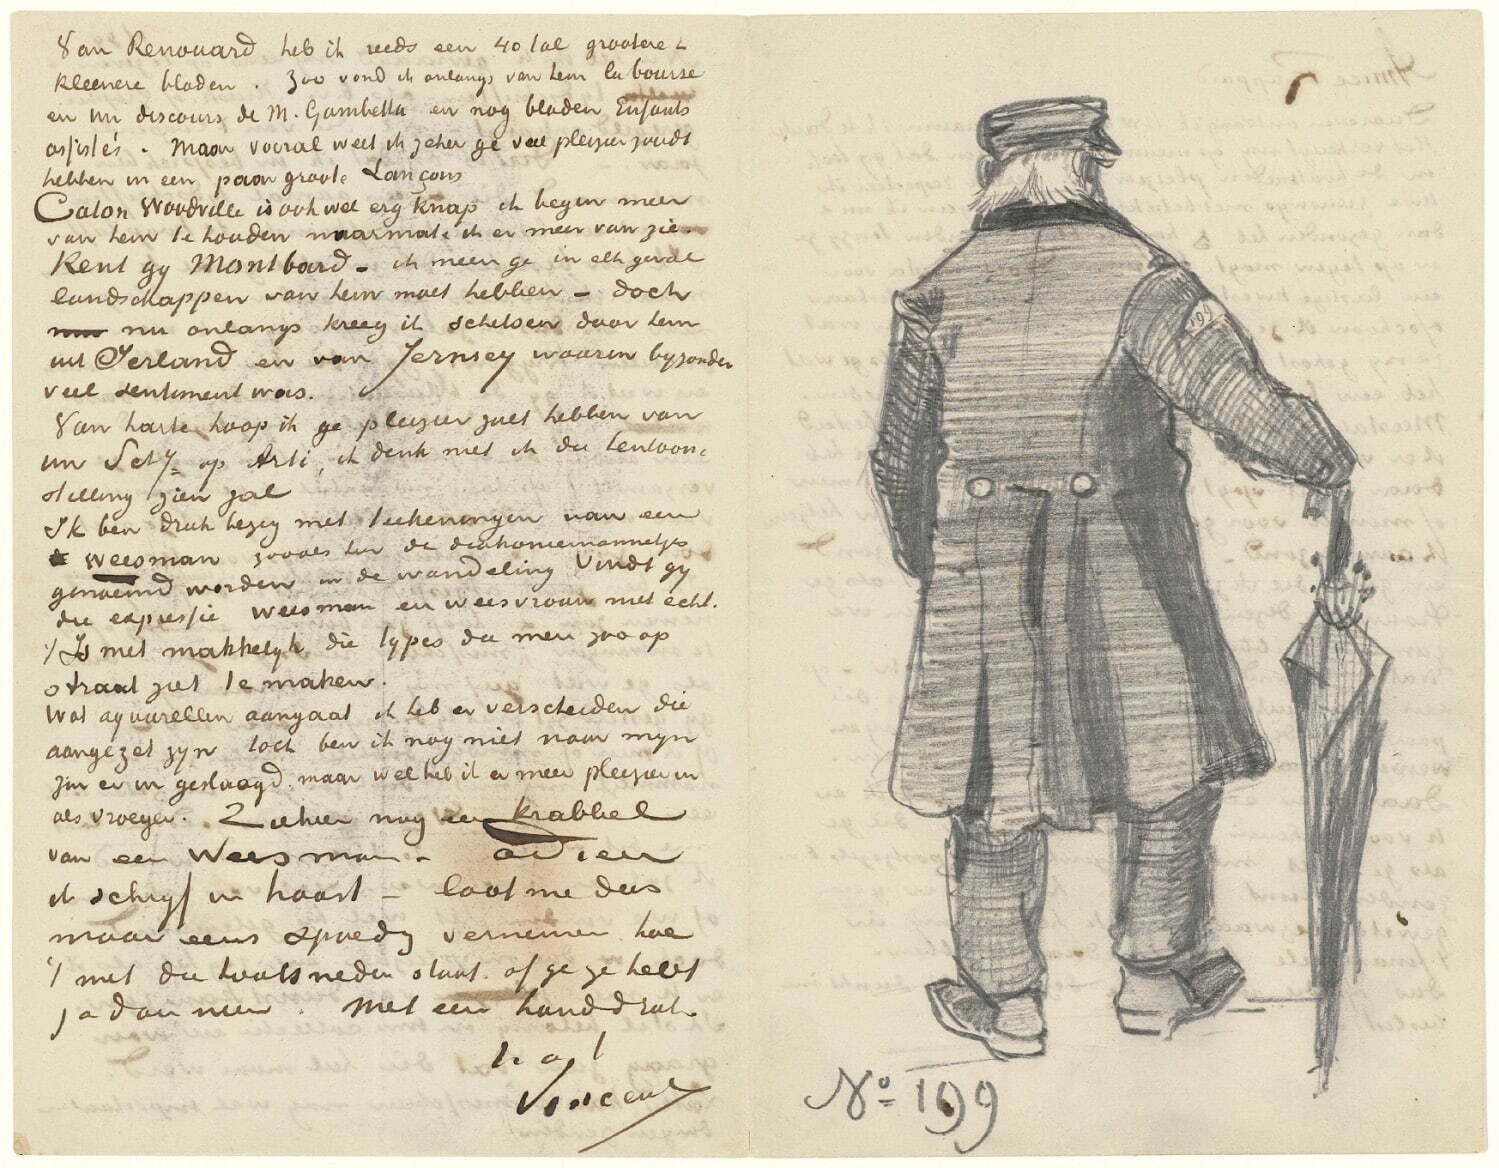 Van Renouard heb ik reeds een 40tal grootere &
kleenere bladen. Zoo vond ik onlangs van hem la bourse
en un discours de M. Gambetta en nog bladen Enfants
assistés. Maar vooral weet ik zeker ge veel pleizier zoudt
hebben in een paar groote Lançons
Caton Woodville is ook wel erg knap ik begin meer
van hem te houden naarmate ik er meer van zie.
Kent gy Montbard – ik meen ge in elk geval
landschappen van hem moet hebben – doch
nu onlangs kreeg ik schetsen door hem
uit Ierland en van Jersey waarin byzonder
veel sentiment was.
Van harte hoop ik ge pleizier zult hebben van
uw Sch.y op Arti, ik denk niet ik die tentoon-
stelling zien zal
Ik ben druk bezig met teekeningen van een
weesman zooals hier de diakoniemannetjes
genoemd worden in de wandeling Vindt gy
die expressie weesman en weesvrouw niet echt.
't Is niet makkelyk die types die men zoo op
straat ziet te maken.
Wat aquarellen aangaat ik heb er verscheiden die
aangezet zyn toch ben ik nog niet naar myn
zin er in geslaagd. maar wel heb ik er meer pleizier in
als vroeger. Ziehier nog een krabbel
van een Weesman. – adieu
ik schryf in haast – laat me dus
maar eens spoedig vernemen hoe
't met die houtsneden staat. of ge ze hebt
ja dan neen. Met een handdruk.
t. à t.
Vincent
199
No 199